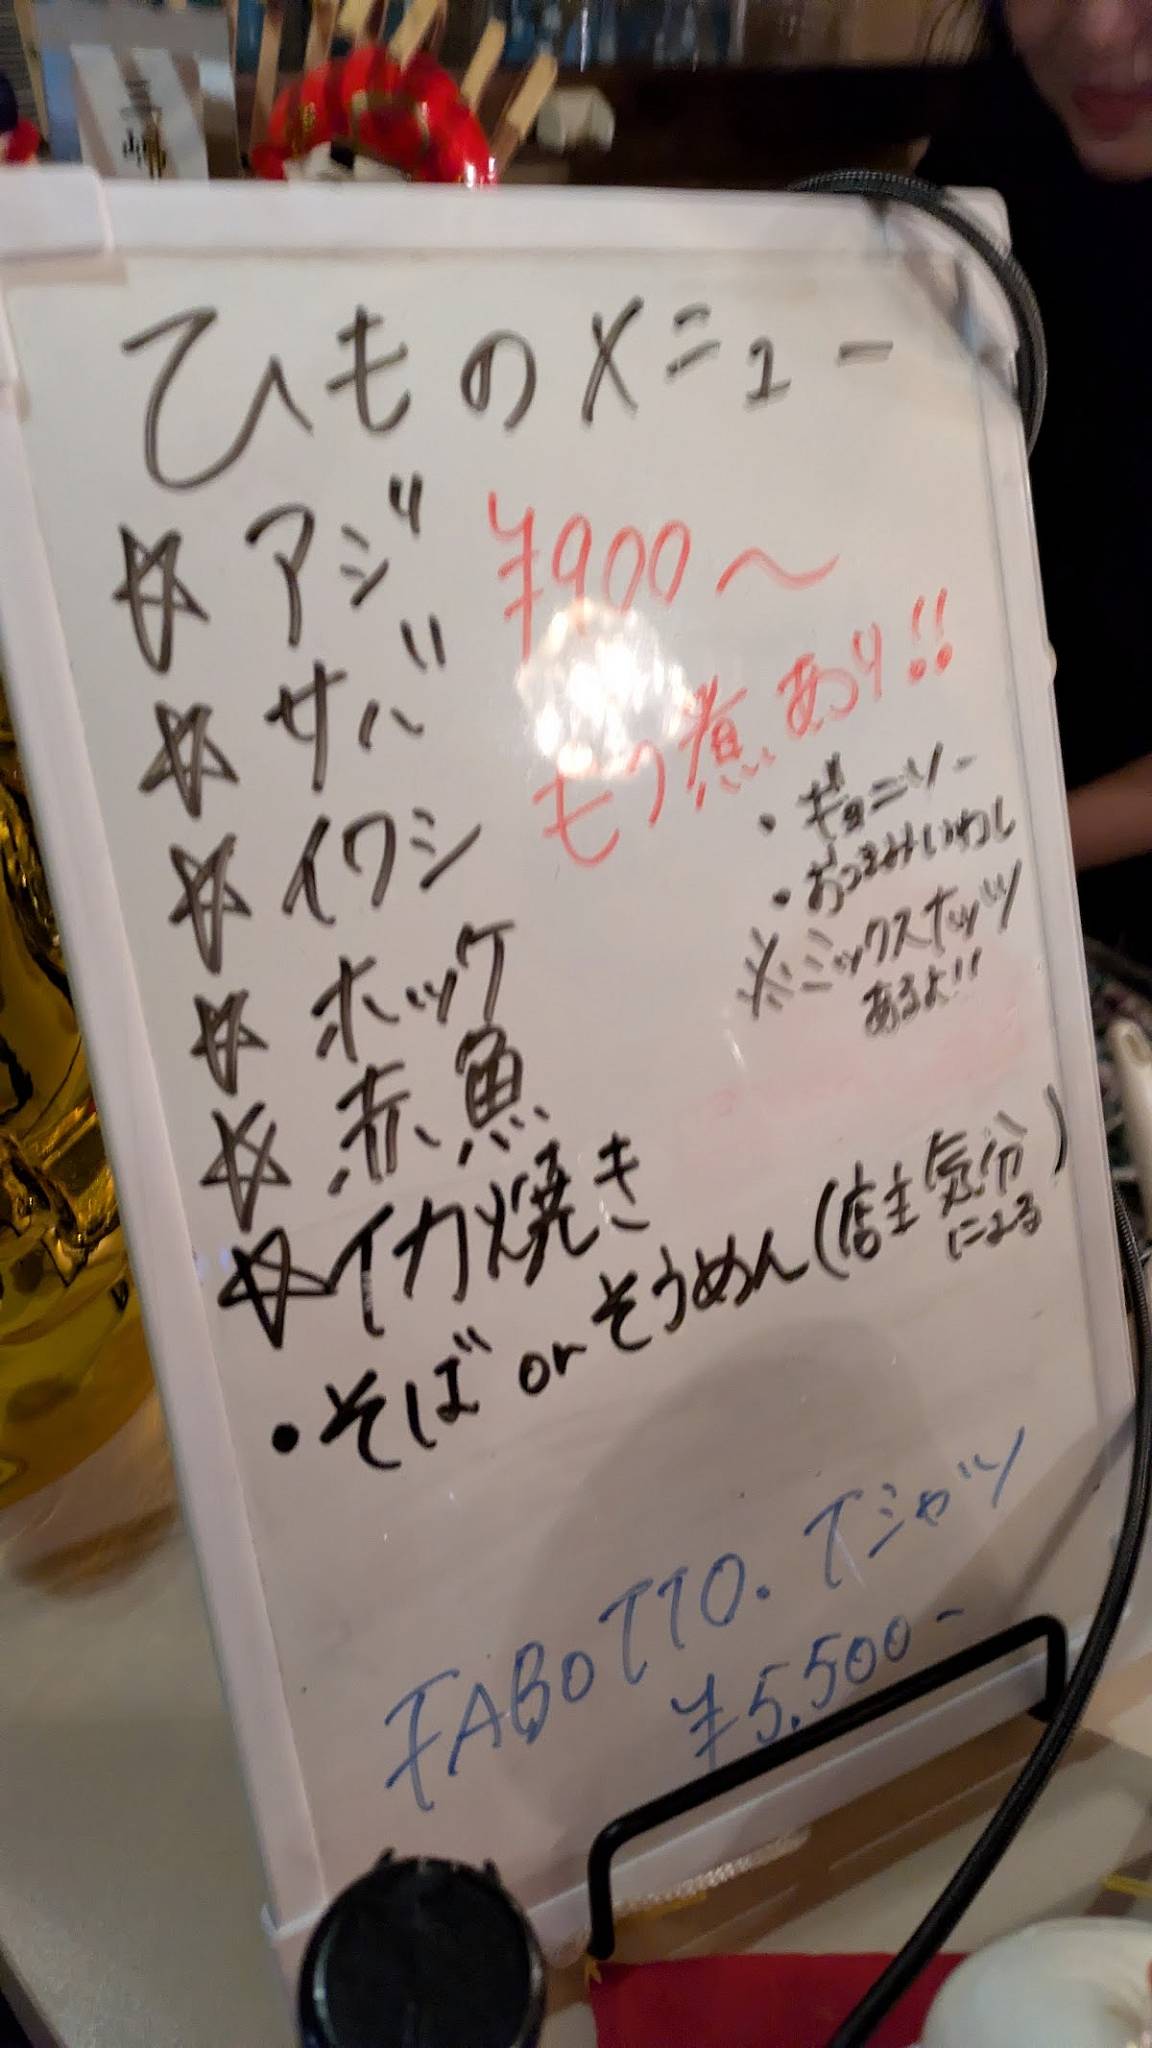 ひものメニュー
☆ アジ ¥900〜
☆ サバ もつ煮あり!!
☆ イワシ
・ギョニソー
・おつまみいわし
※ミックスナッツ
あるよ!!
☆ ホッケ
☆ 赤魚
☆ イカ焼き
・そば or そうめん (店主気分による)
FABOTTO. Tシャツ
¥5,500-